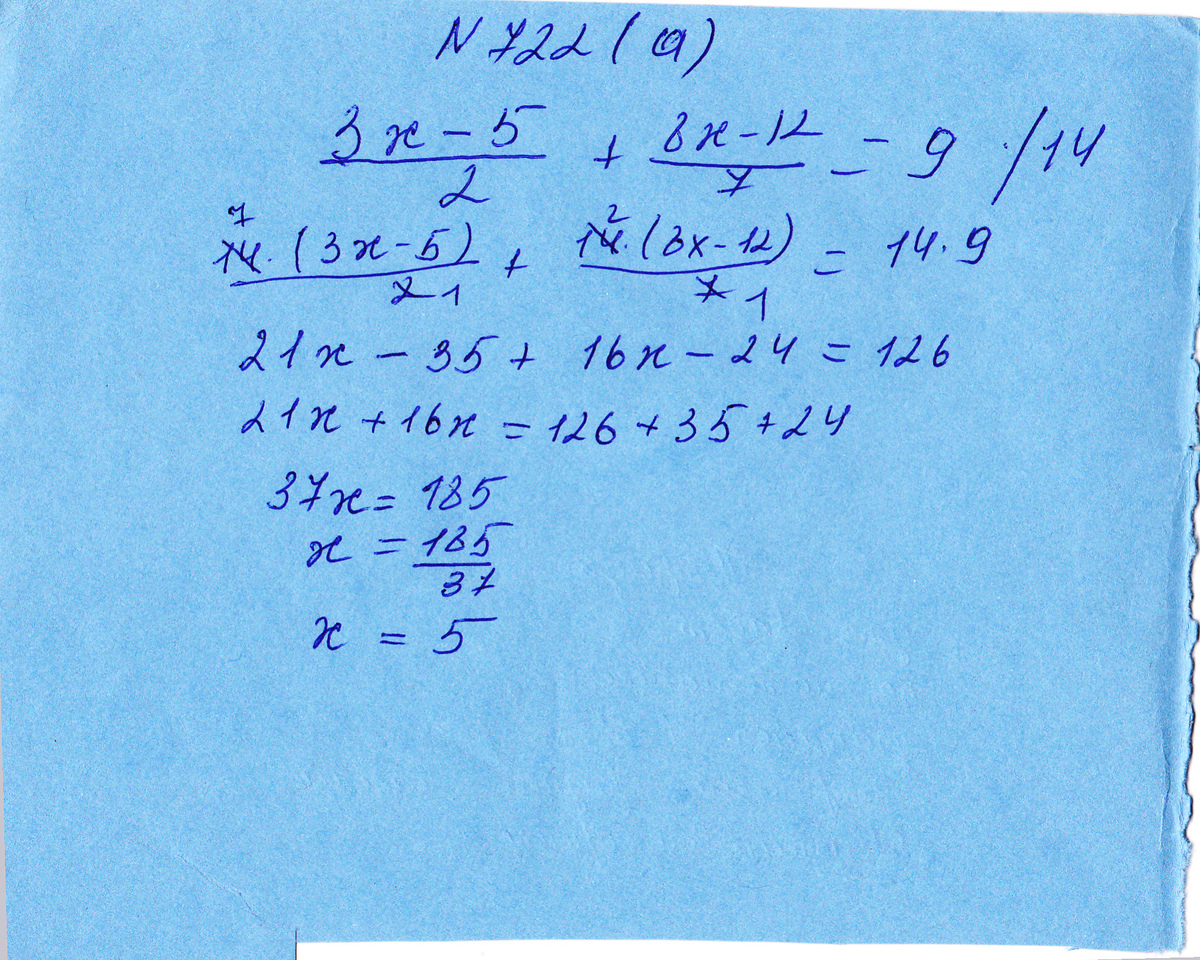 N 722 (а)
(3x - 5)/2 + (8x - 12)/7 = 9 ·/14
7 14·(3x - 5)/2 1 + 2 14·(8x - 12)/7 1 = 14·9
21x - 35 + 16x - 24 = 126
21x + 16x = 126 + 35 + 24
37x = 185
x = 185/37
x = 5